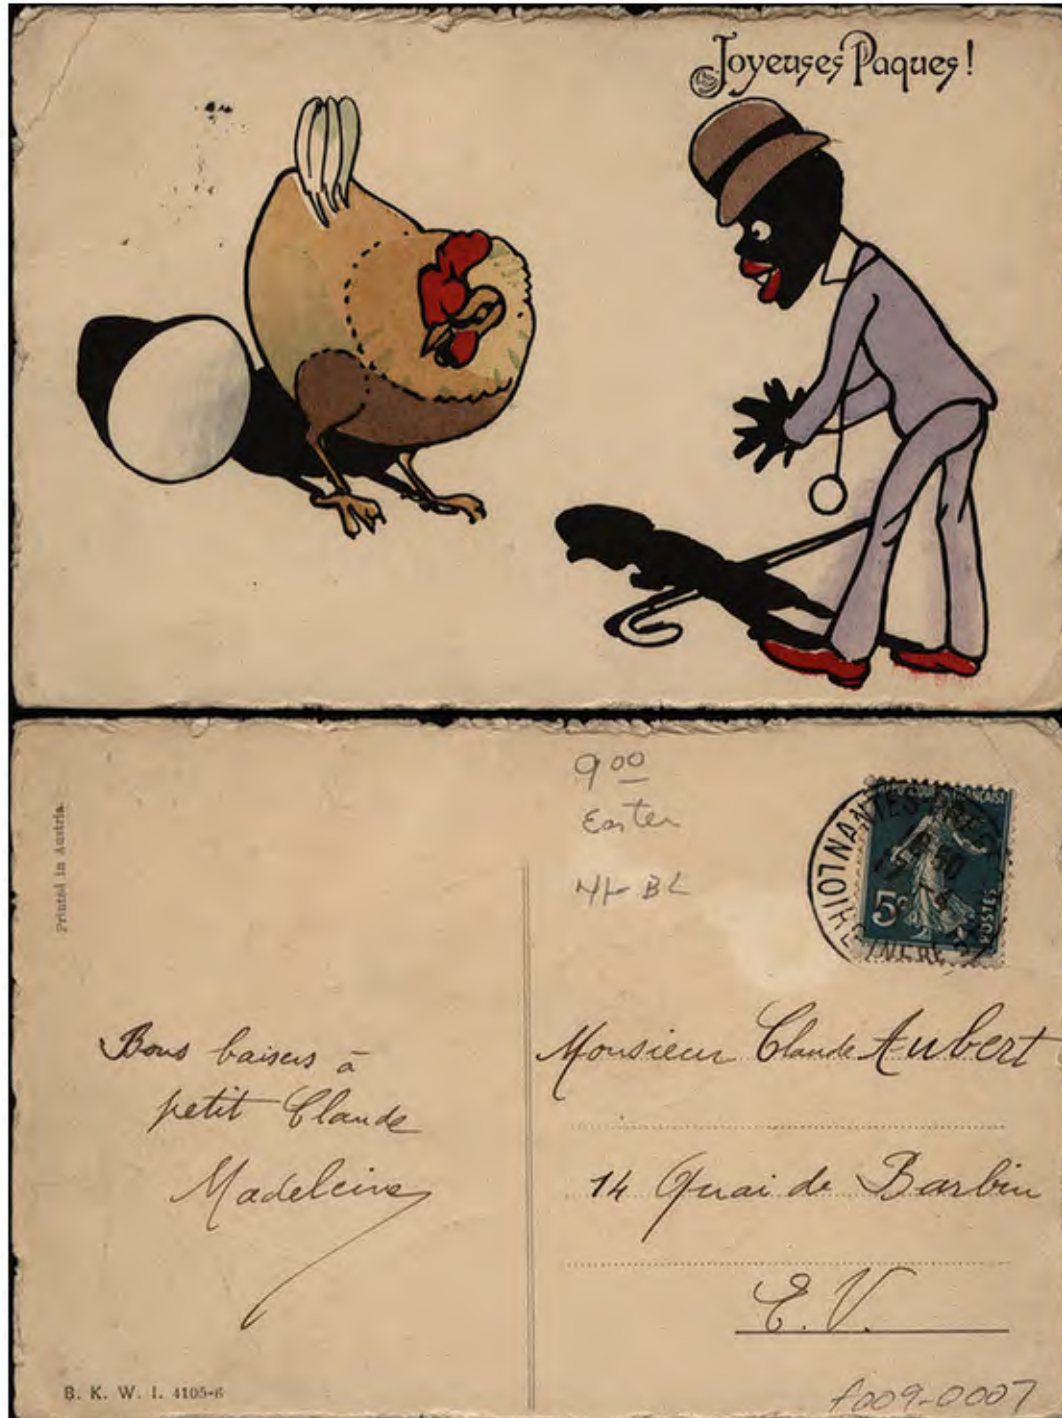 Joyeuses Paques!
Printed in Austria.
9 00
Easter
5c
POSTES
Bons baisers à
petit Claude
Madeleine
Monsieur Claude Aubert
14 Quai de Barbin
E. V.
B. K. W. I. 4105-6
f009-0007